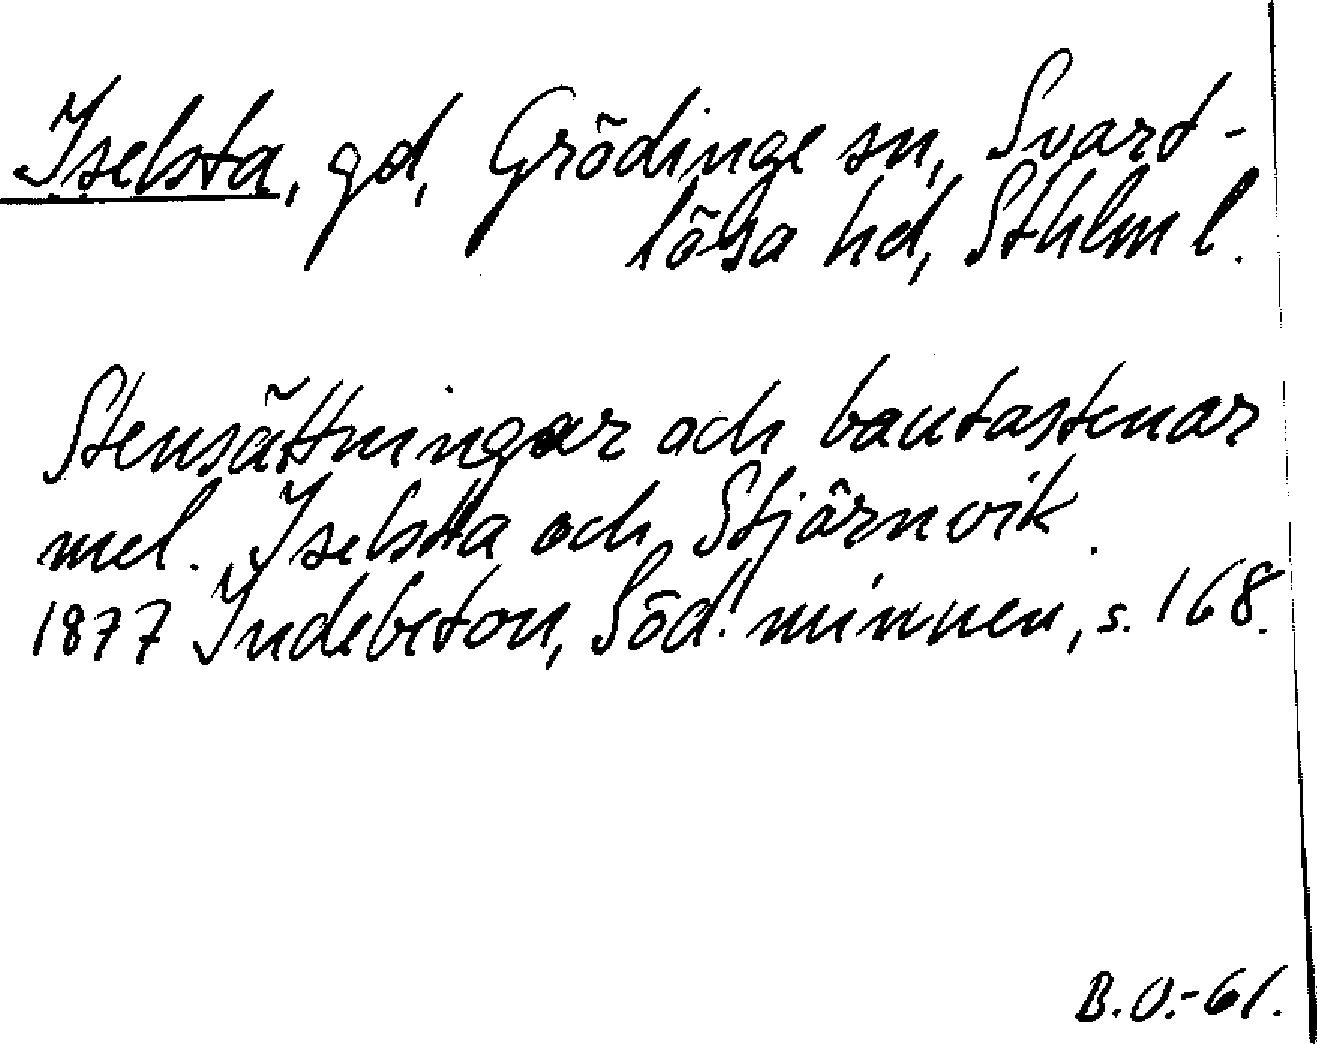 Iselsta, gd, Grödinge sn, Svart-
lösa hd, Sthlm l.
Stensättningar och bautastenar
mel. Iselsta och Stjärnvik.
1877 Indebetou, Söd. minnen, s. 168.
B.O.-61.